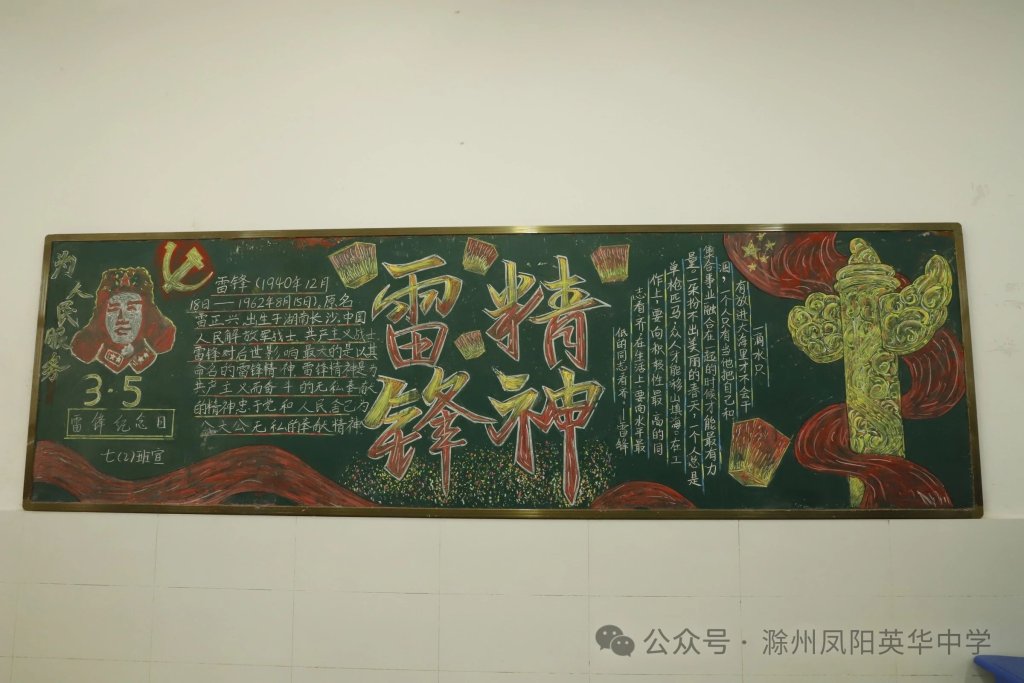 为人民服务
3·5
雷锋纪念日
七(2)班宣
雷锋(1940年12月
18日——1962年8月15日),原名
雷正兴,出生于湖南长沙,中国
人民解放军战士、共产主义战士
雷锋对后世影响最大的是以其
命名的雷锋精神,雷锋精神是为
共产主义而奋斗的无私奉献
的精神忠于党和人民舍己为
公大公无私的奉献精神
雷锋
精神
一滴水只
有放进大海里才不会干
涸,一个人只有当他把自己和
集合事业融合在一起的时候才能最有力
量一朵扮不出美丽的春天,一个人总是
单枪匹马,众人才能移山填海,在工
作上,要向积极性最高的同
志看齐,在生活上,要向水平最
低的同志看齐,——雷锋
公众号·滁州凤阳英华中学